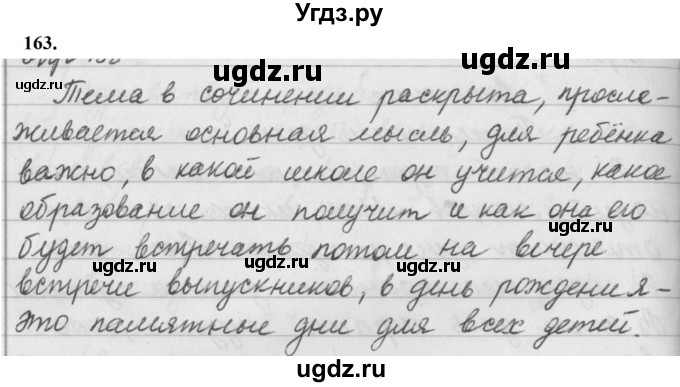 Угдз.ру
163.
ugdz.ru
ugdz.ru
Тема в сочинении раскрыта, просле-
живается основная мысль, для ребёнка
ugdz.ru ugdz.ru
важно, в какой школе он учится, какое
образование он получит и как она его
будет встречать потом на вечере
ugdz.ru ugdz.ru ugdz.ru
встречи выпускников, в день рождения –
это памятные дни для всех детей.
ugdz.ru